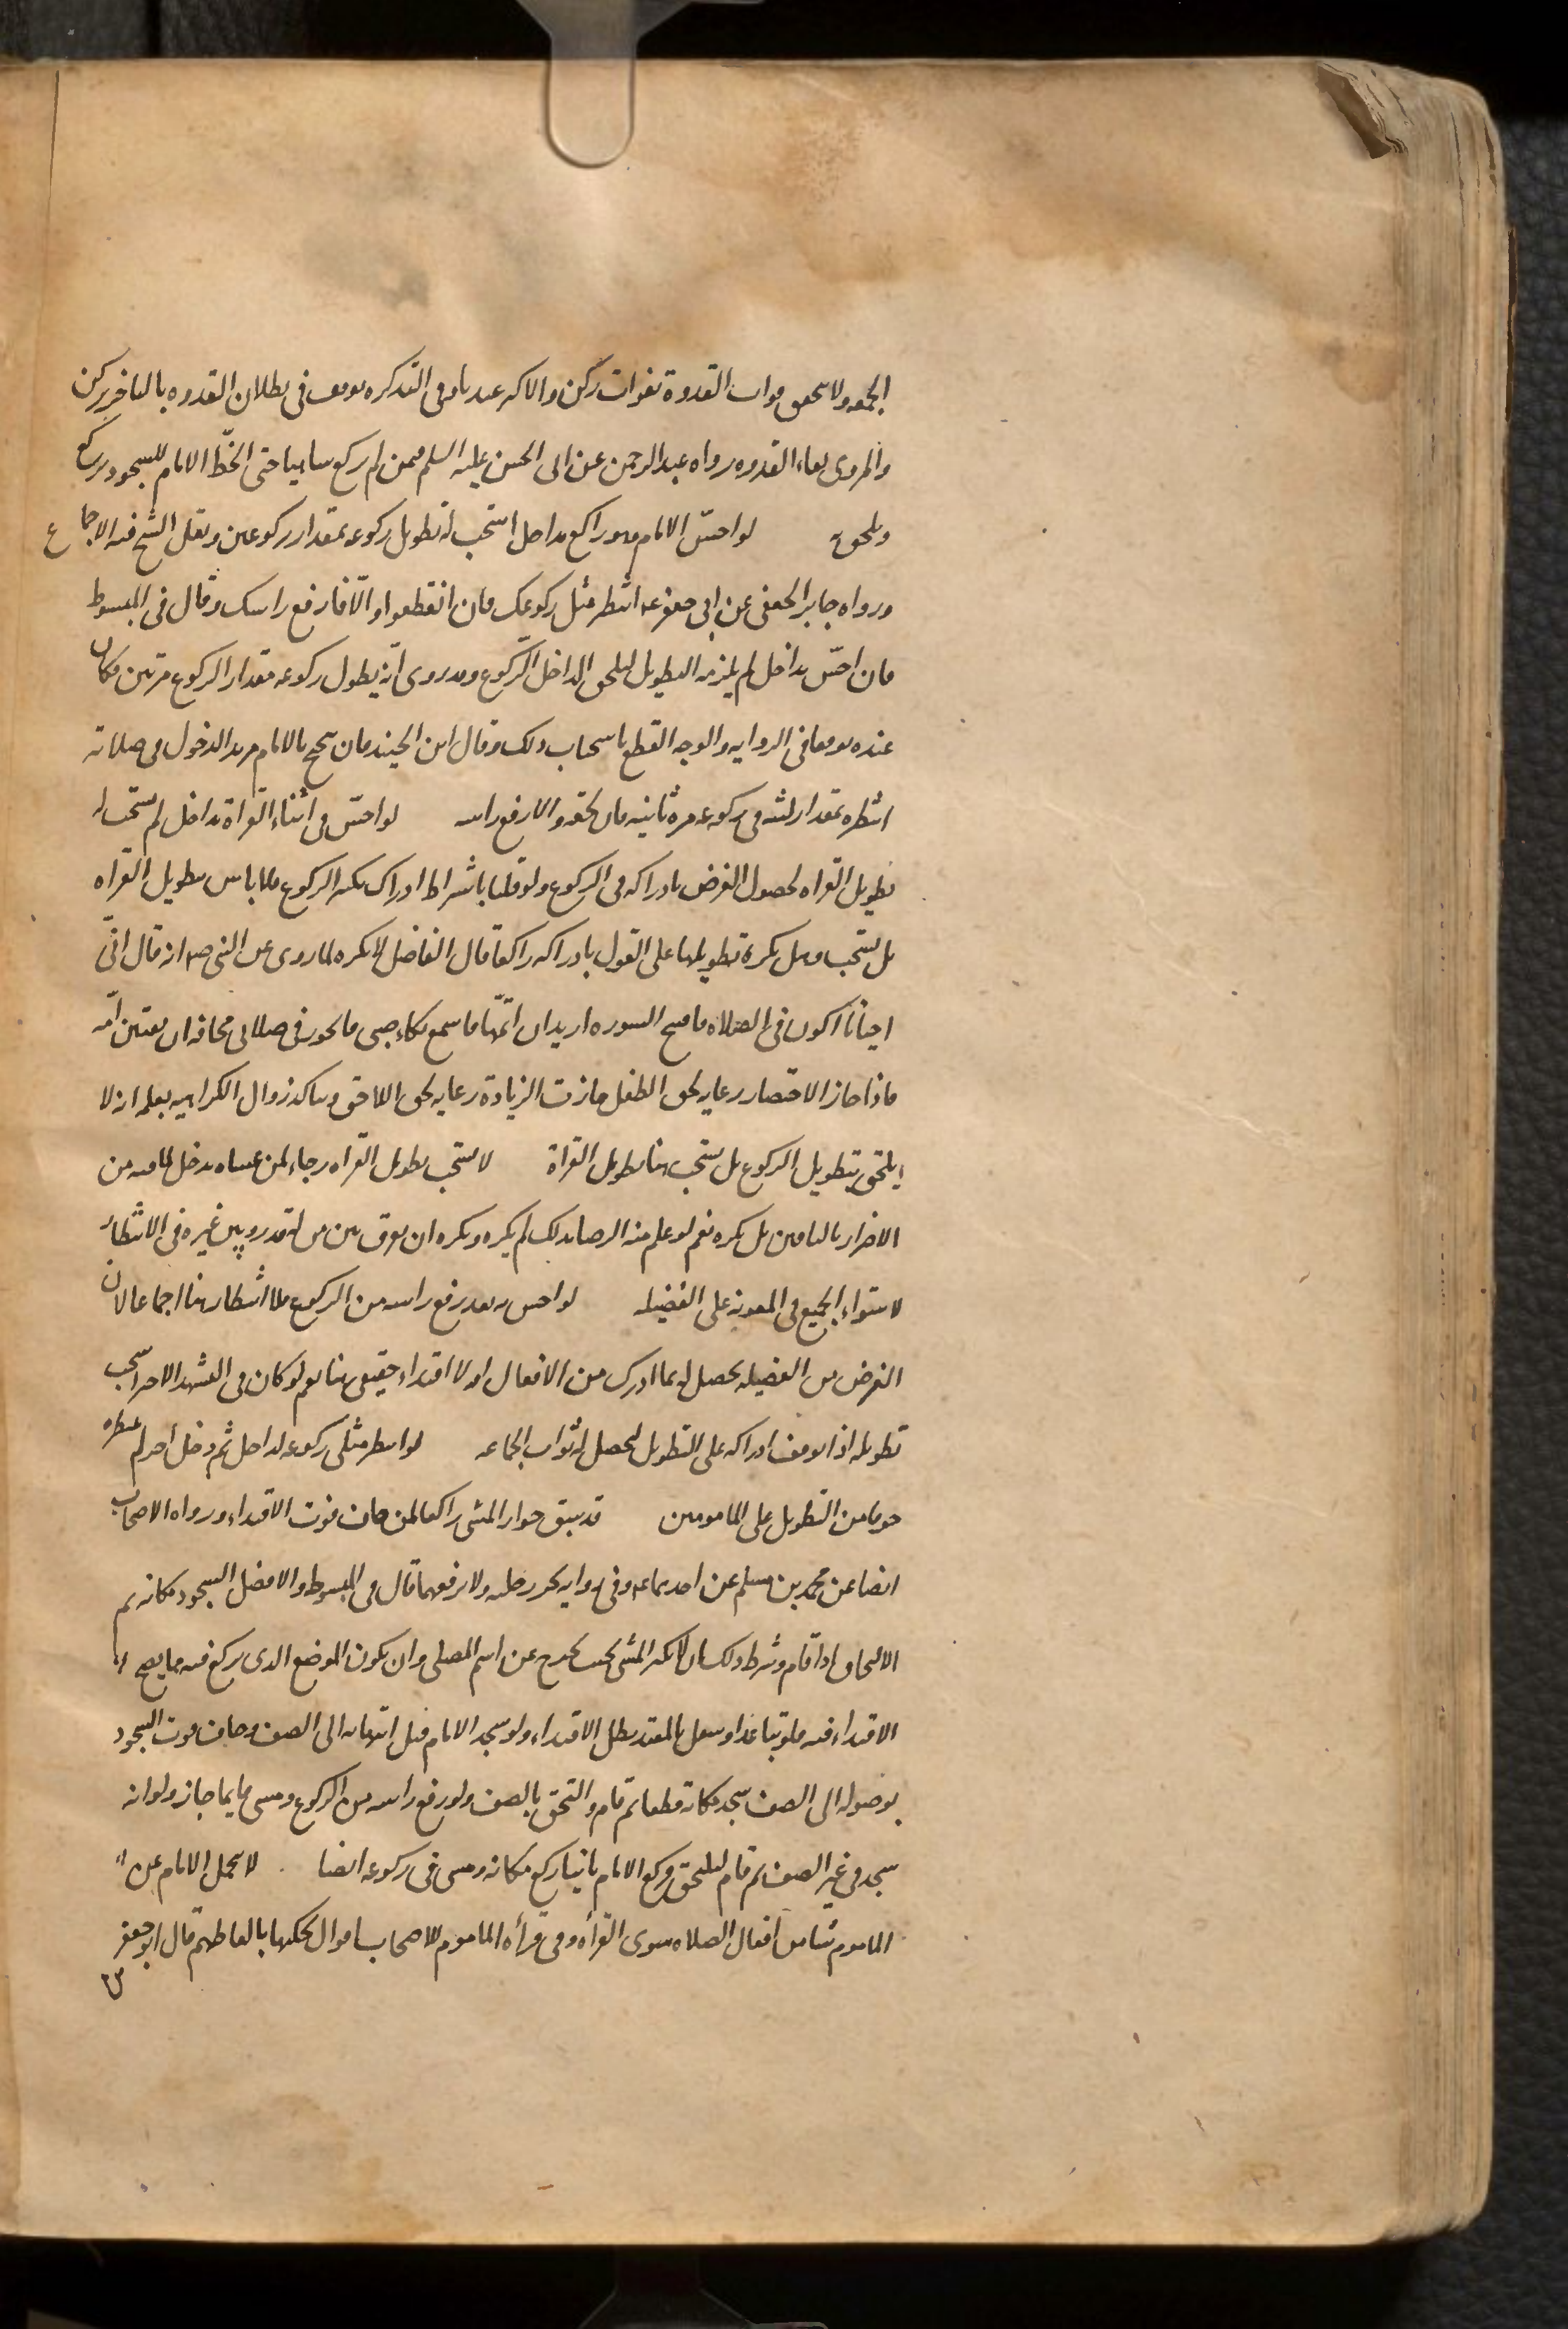 الجمعه ولا يتحقق فوات القدوة بفوات ركن والاكثر عندنا وفي التذكره توقف في بطلان القدوه بالتاخر بركن
والمروى بقاء القدوه رواه عبد الرحمن عن ابي الحسن عليه السلم فيمن لم يركع ساهيا حتى انحطّ الامام للسجود يركع
ويلحق به لو احسّ الامام وهو راكع بداخل استحب له تطويل ركوعه بمقدار ركوعين ونقل الشيخ فيه الاجماع
ورواه جابر الجعفى عن ابى جعفر عه انتظر مثلى ركوعك فان انقطعوا والّا فارفع راسك وقال فى المبسوط
فان احسّ بداخل لم يلزمه التطويل ليلحق الداخل الركوع وقد روى انّه يطول ركوعه مقدار الركوع مرتين فكان
عنده توقفا فى الروايه والوجه القطع باستحباب ذلك وقال ابن الجنيد فان تنحنح بالامام مريد الدخول فى صلاته
انتظره بمقدار لبثه فى ركوعه مرة ثانيه فان لحقه والا رفع راسه لو احسّ فى اثناء القراة بداخل لم يستحب له
تطويل القراه لحصول الغرض بادراكه فى الركوع ولو قلنا باشتراط ادراك تكبيره الركوع فلا باس بتطويل القراه
بل يستحب وهل يكره تطويلها على القول بادراكه راكعا قال الفاضل لا يكره لما روى عن النبى ص انه قال انّى
احيانا اكون فى الصلاه فافتتح السوره اريد ان اتمّها فاسمع بكاء صبى فاتجوز فى صلاتى مخافه ان تفتتن امّه
فاذا جاز الاختصار رعايه لحق الطفل جازت الزيادة رعايه لحق اللاحق ويتاكد زوال الكراهيه بعلمه انه لا
يلتحق بتطويل الركوع بل يستحب هنا تطويل القراة لا يستحب تطويل القراه رجاء لمن عساه يدخل لما فيه من
الاضرار بالمامومين بل يكره نعم لو علم منه الرضا بذلك لم يكره ويكره ان يفرق بين من له قدر وبين غيره فى الانتظار
لاستواء الجميع فى المعونه على الفضيله لو احس به بعد رفع راسه من الركوع فلا انتظار هنا اجماعا لان
الغرض من الفضيله يحصل له بما ادرك من الافعال اذ لا اقتداء حقيقى هنا نعم لو كان فى التشهد الاخر استحب
تطويله اذا توقف ادراكه على التطويل ليحصل له ثواب الجماعه لو انتظر مثلى ركوعه لداخل ثم دخل آخر لم ينتظره
خوفا من التطويل على المامومين قد سبق جواز المشى راكعا لمن خاف فوت الاقتداء ورواه الاصحاب
ايضا عن محمد بن مسلم عن احدهما عه وفى روايه يجر رجليه ولا يرفعهما قال فى المبسوط والافضل السجود مكانه ثم
الالتحاق اذا قام وشرط ذلك ان لا يكثر المشى بحيث يخرج عن اسم المصلى وان يكون الموضع الذى يركع فيه مما يصح
الاقتداء فيه فلو تباعد او سفل بالمعتد بطل الاقتداء ولو سجد الامام قبل انتهائه الى الصف وخاف فوت السجود
بوصوله الى الصف سجد مكانه قطعا ثم قام والتحق بالصف ولو رفع راسه من الركوع ومشى قايما جاز ولو انه
سجد فى غير الصف ثم قام ليلتحق فركع الامام ثانيا ركع مكانه ومشى فى ركوعه ايضا لا يتحمل الامام عن
الماموم شيئا من افعال الصلاه سوى القرأه وفى قرأه الماموم للاصحاب اقوال نحكيها بالفاظهم قال ابو جعفر